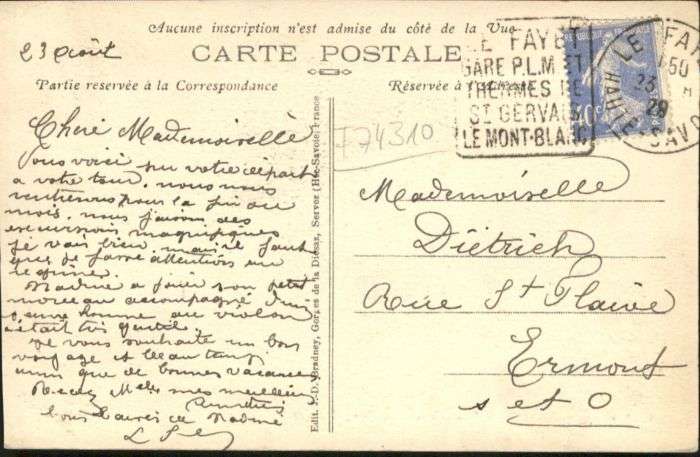 Aucune inscription n'est admise du côté de la Vue
CARTE POSTALE
Partie reservée à la Correspondance
Réservée à
23 Août
Chère Mademoiselle
Vous voici sur votre départ
a votre tour. nous nous
rentrerons pour la fin du
mois. nous faisons des
excursions magnifiques
je vais bien, mais il faut
que je fasse attention au
régime.
Nadine a jouer son petit
morceau accompagné d'un
jeune homme au violon
c'était très gentil.
Je vous souhaite un bon
voyage et beau temps
ainsi que de bonnes vacances
Recev Melle mes meilleurs
Bons baisers de Nadine
Edit. J.-D. Bradney, Gorges de la Diosaz, Servoz (Hte-Savoie) France
F74310
LE FAYET
GARE P.L.M ET
THERMES DE
ST GERVAIS
LE MONT-BLANC
LE FAY
HAUTE-SAVO
23
28
Mademoiselle
Diétrich
Rue St Flaive
Ermont
S et O